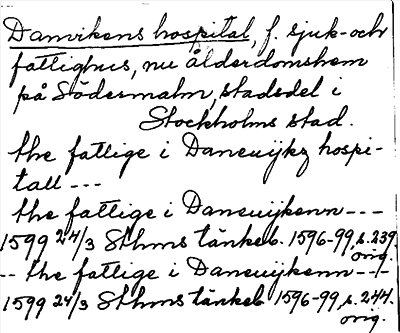 Danvikens hospital, f. sjuk- och
fattighus, nu ålderdomshem
på Södermalm, stadsdel i
Stockholms stad.
the fattige i Daneuijkz hospi-
tall ---
the fattige i Daneuijkenn ---
1599 24/3 Sthms tänkeb. 1596-99, s. 239.
orig.
-- the fattige i Daneuijkenn ---
1599 24/3 Sthms tänkeb 1596-99, s. 244.
orig.